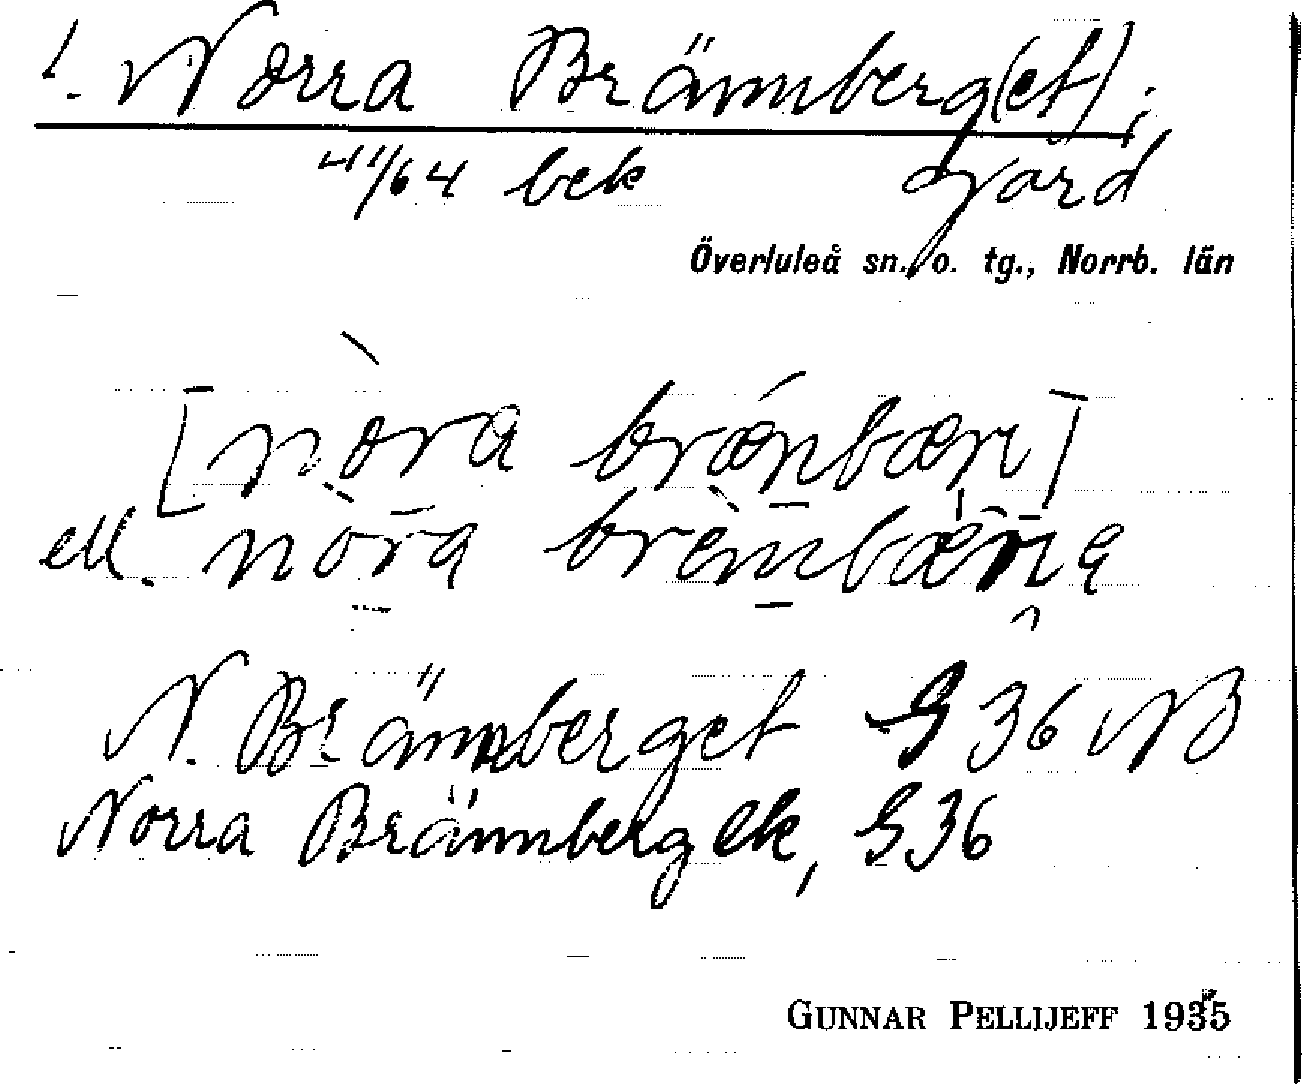 1. Norra Brännberg(et);
4 1/64 bek gård
Överluleå sn. o. tg., Norrb. län
[nòra brǽnbæri]
ell. nòra brèmbæriа
N. Brännberget G 36 NB
Norra Brännberg ek, G36
GUNNAR PELLIJEFF 1935